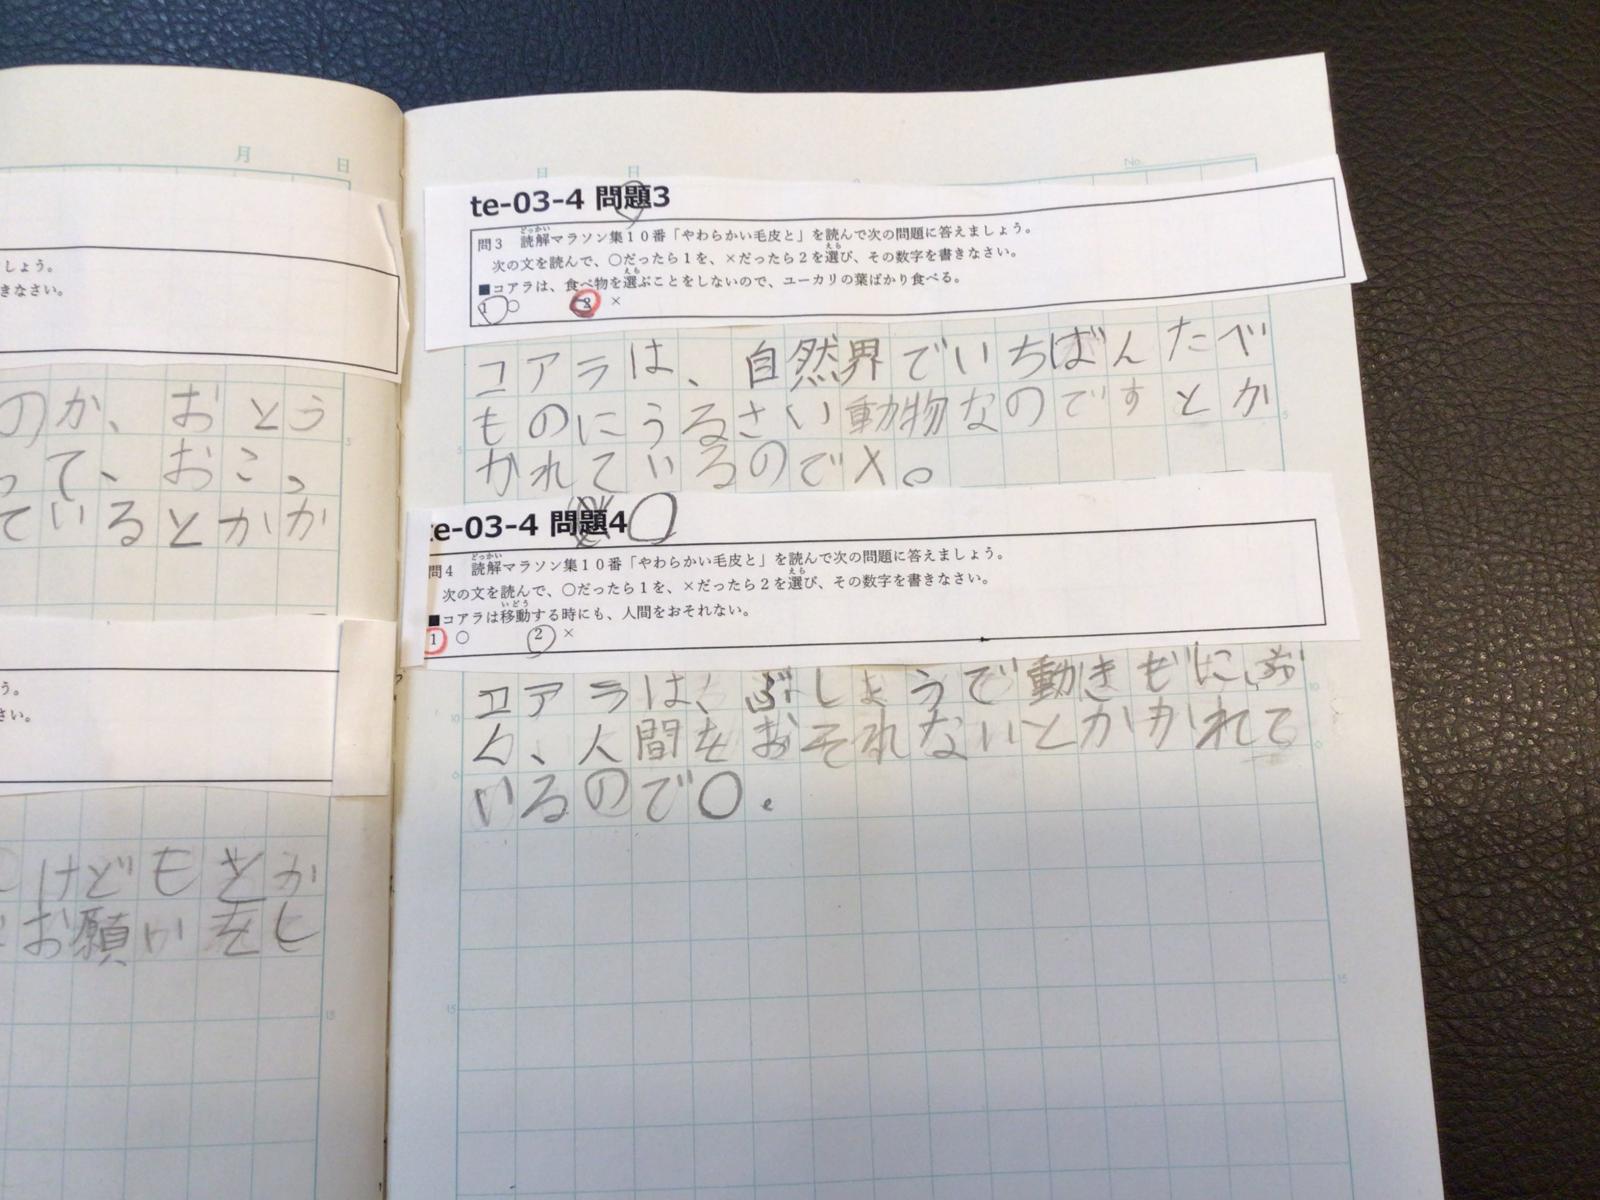 月 日
しょう。
きなさい。
のか、おとう
って、おこっ
ているとかか
う。
さい。
けどもをか
お願いをし
月 日 No.
te-03-4 問題3
問3 読解マラソン集10番「やわらかい毛皮と」を読んで次の問題に答えましょう。
次の文を読んで、○だったら1を、×だったら2を選び、その数字を書きなさい。
■コアラは、食べ物を選ぶことをしないので、ユーカリの葉ばかり食べる。
1 ○ 2 ×
コアラは、自然界でいちばんたべ
ものにうるさい動物なのですとか
かれているのでX。
te-03-4 問題4 ○
問4 読解マラソン集10番「やわらかい毛皮と」を読んで次の問題に答えましょう。
次の文を読んで、○だったら1を、×だったら2を選び、その数字を書きなさい。
■コアラは移動する時にも、人間をおそれない。
1 ○ 2 ×
コアラは、ぶしょうで動きもにぶ
く、人間をおそれないとかかれて
いるので○。
5
10
15